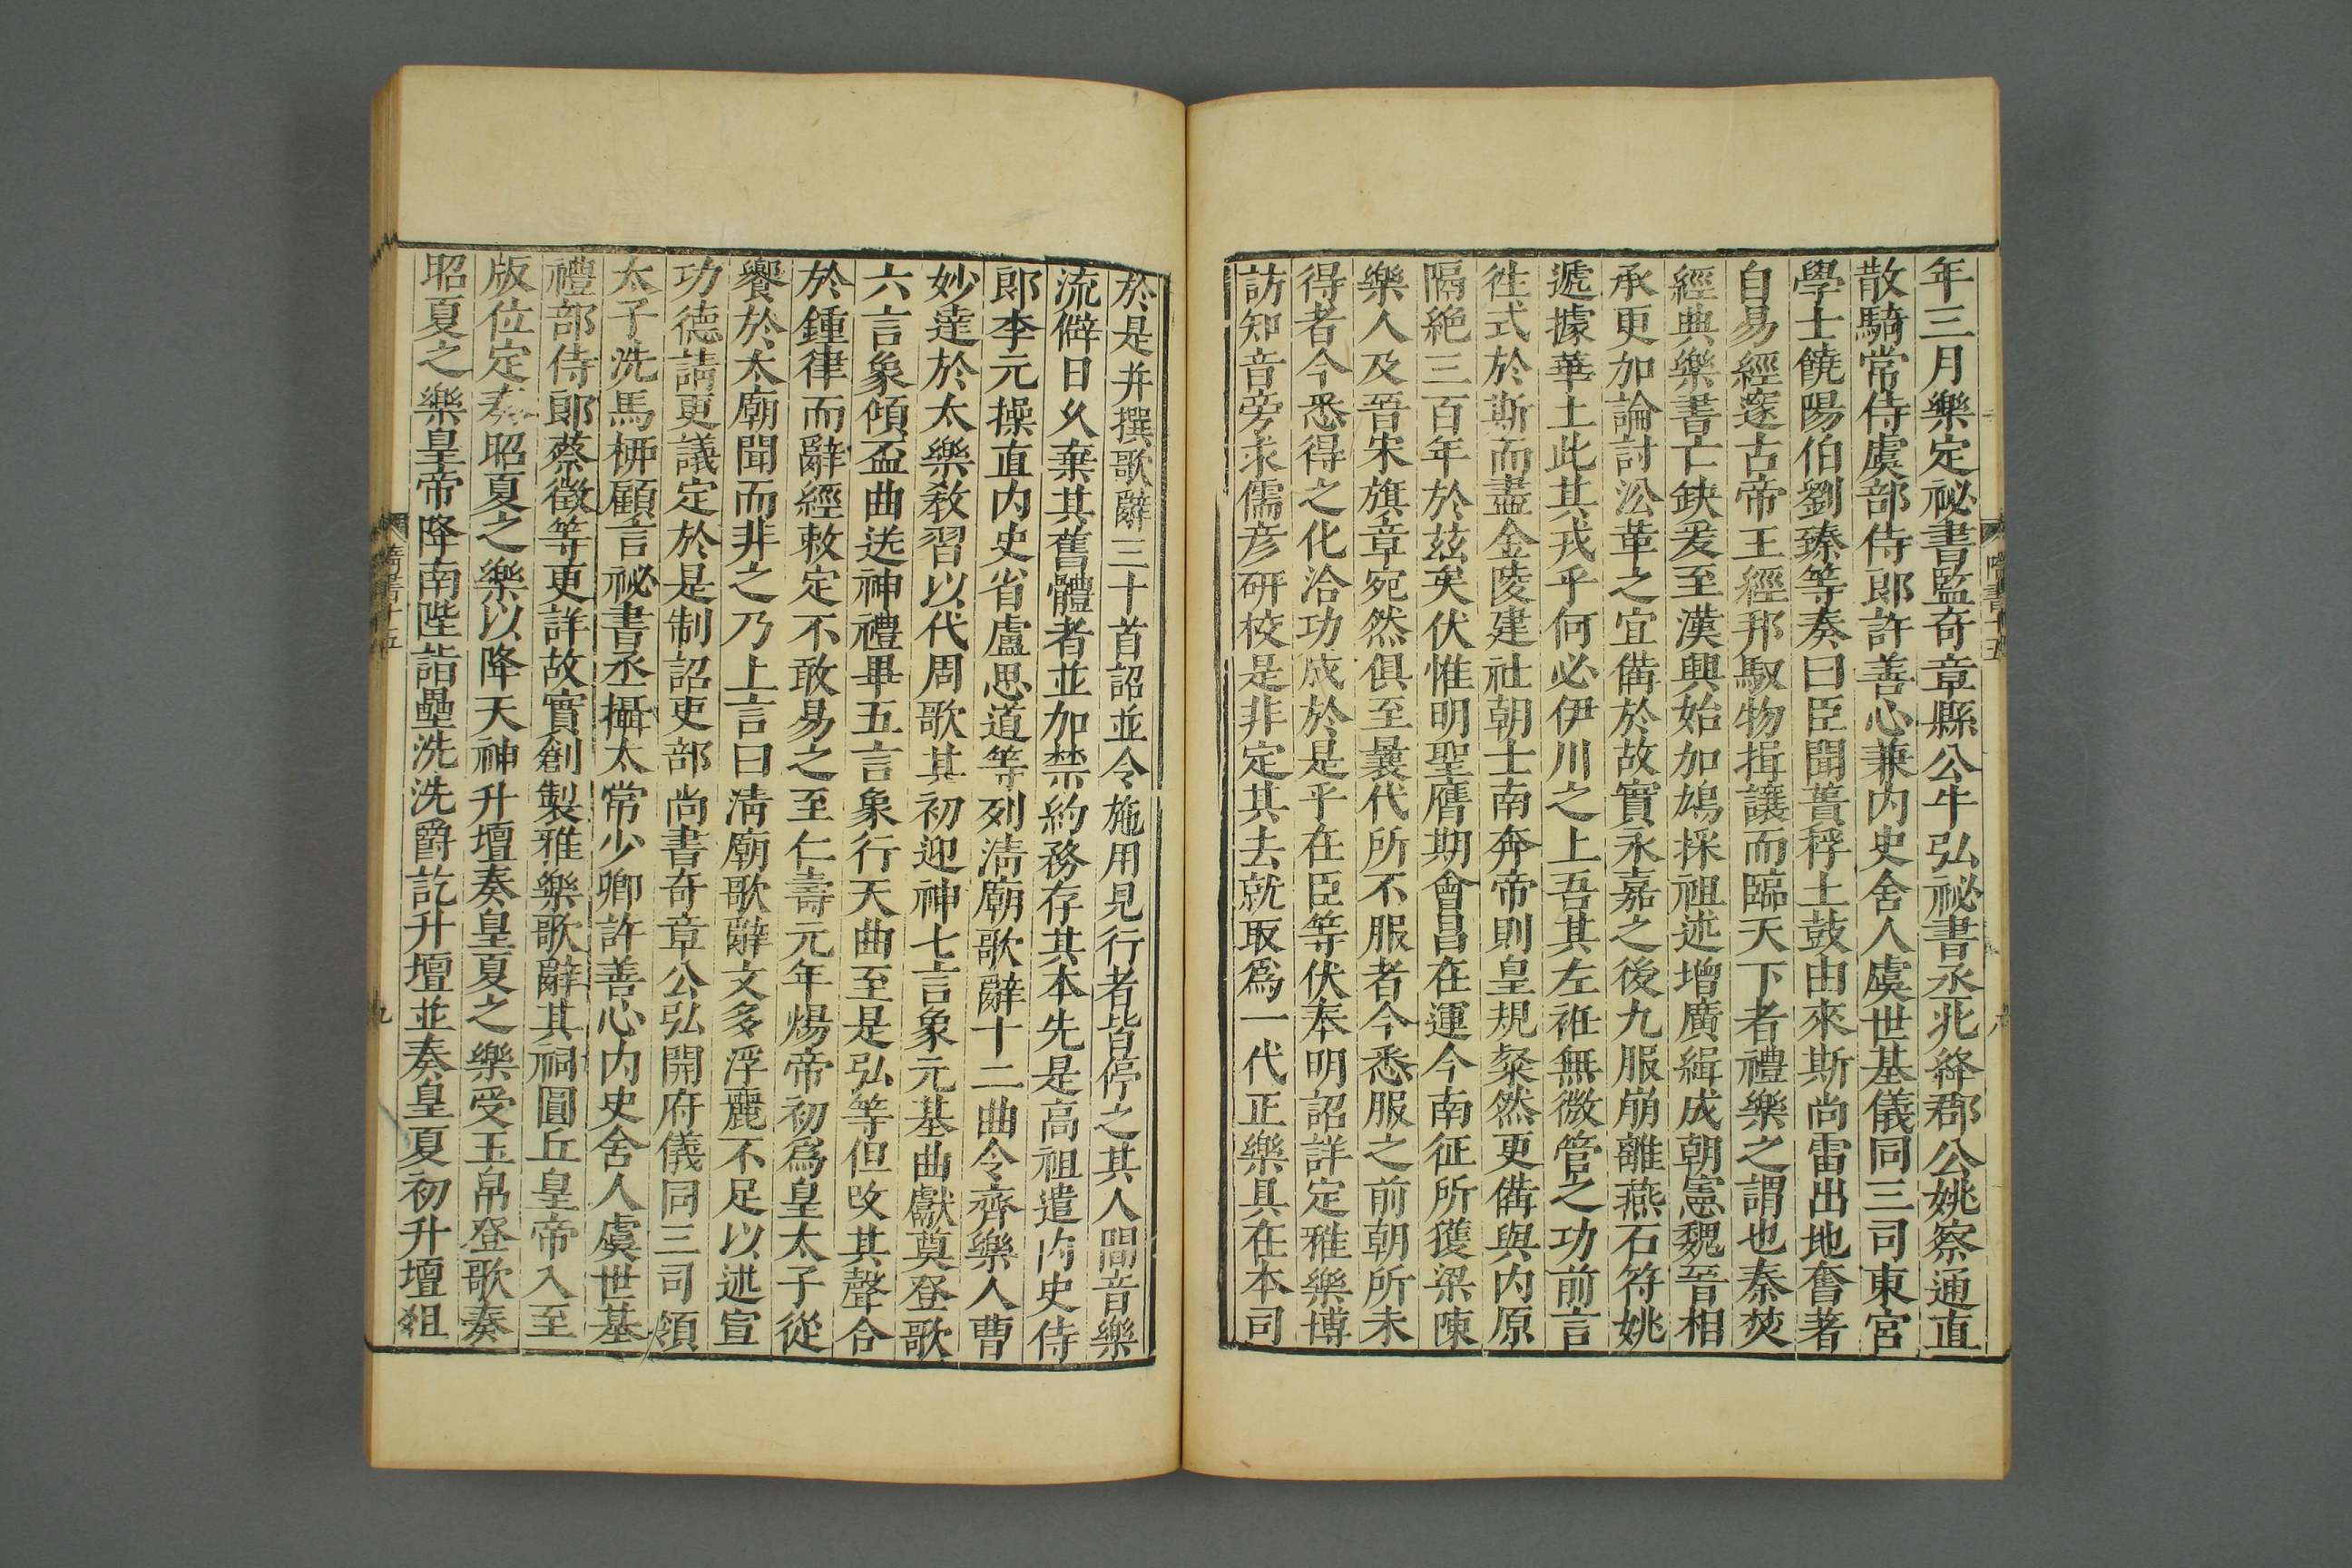 年三月樂定祕書監奇章縣公牛弘祕書丞北絳郡公姚察通直
散騎常侍虞部侍郎許善心兼内史舍人虞世基儀同三司東宮
學士饒陽伯劉臻等奏曰臣聞蕢桴土鼓由來斯尚雷出地奮著
自易經邃古帝王經邦馭物揖讓而臨天下者禮樂之謂也秦焚
經典樂書亡缺爰至漢興始加鳩採祖述增廣緝成朝憲魏晉相
承更加論討㳂革之宜備於故實永嘉之後九服崩離燕石符姚
遞據華土此其戎乎何必伊川之上吾其左袵無微管之功前言
徃式於斯而盡金陵建社朝士南奔帝則皇規粲然更備與内原
隔絶三百年於玆矣伏惟明聖膺期會昌在運今南征所獲梁陳
樂人及晉宋旗章宛然俱至曩代所不服者今悉服之前朝所未
得者今悉得之化洽功成於是乎在臣等伏奉明詔詳定雅樂博
訪知音旁求儒彦研校是非定其去就取爲一代正樂具在本司
於是并撰歌辭三十首詔並令施用見行者皆停之其人間音樂
流僻日乆棄其舊體者並加禁約務存其本先是高祖遣内史侍
郎李元操直内史省盧思道等列清廟歌辭十二曲令齊樂人曹
妙達於太樂教習以代周歌其初迎神七言象元基曲獻奠登歌
六言象傾盃曲送神禮畢五言象行天曲至是弘等但改其聲合
於鍾律而辭經敕定不敢易之至仁壽元年煬帝初爲皇太子從
饗於太廟聞而非之乃上言曰清廟歌辭文多浮麗不足以述宣
功德請更議定於是制詔吏部尚書奇章公弘開府儀同三司領
太子洗馬桞顧言祕書丞攝太常少卿許善心内史舍人虞世基
禮部侍郎蔡徵等更詳故實創製雅樂歌辭其祠圓丘皇帝入至
版位定奏昭夏之樂以降天神升壇奏皇夏之樂受玉帛登歌奏
昭夏之樂皇帝降南陛詣罍洗洗爵訖升壇並奏皇夏初升壇俎
隋書十五
九